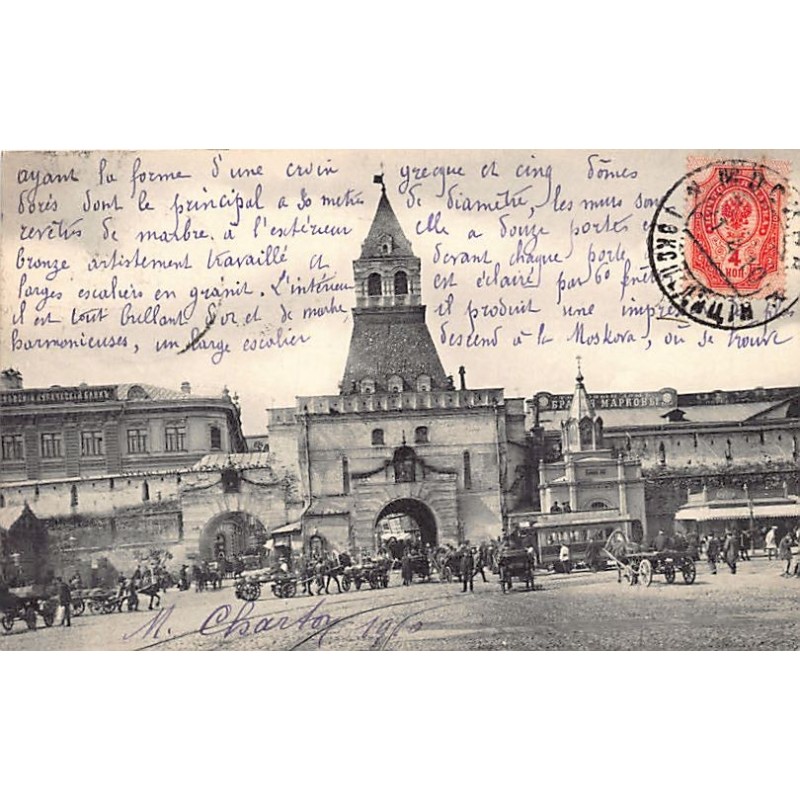 ayant la forme d'une croix grecque et cinq dômes
dorés dont le principal a 30 metres de diametre, les murs sont
revêtus de marbre. à l'extérieur elle a douze portes
bronze artistement travaillé et devant chaque porte
larges escaliers en granit. L'intérieur est éclairé par 60
il est tout brillant d'or et de marbre, il produit une
harmonieuses, un large escalier descend à la Moskova, où se trouve
4
КОП
МОСКВА
БРАТЬЯ МАРКОВЫ
M. Charton 1910